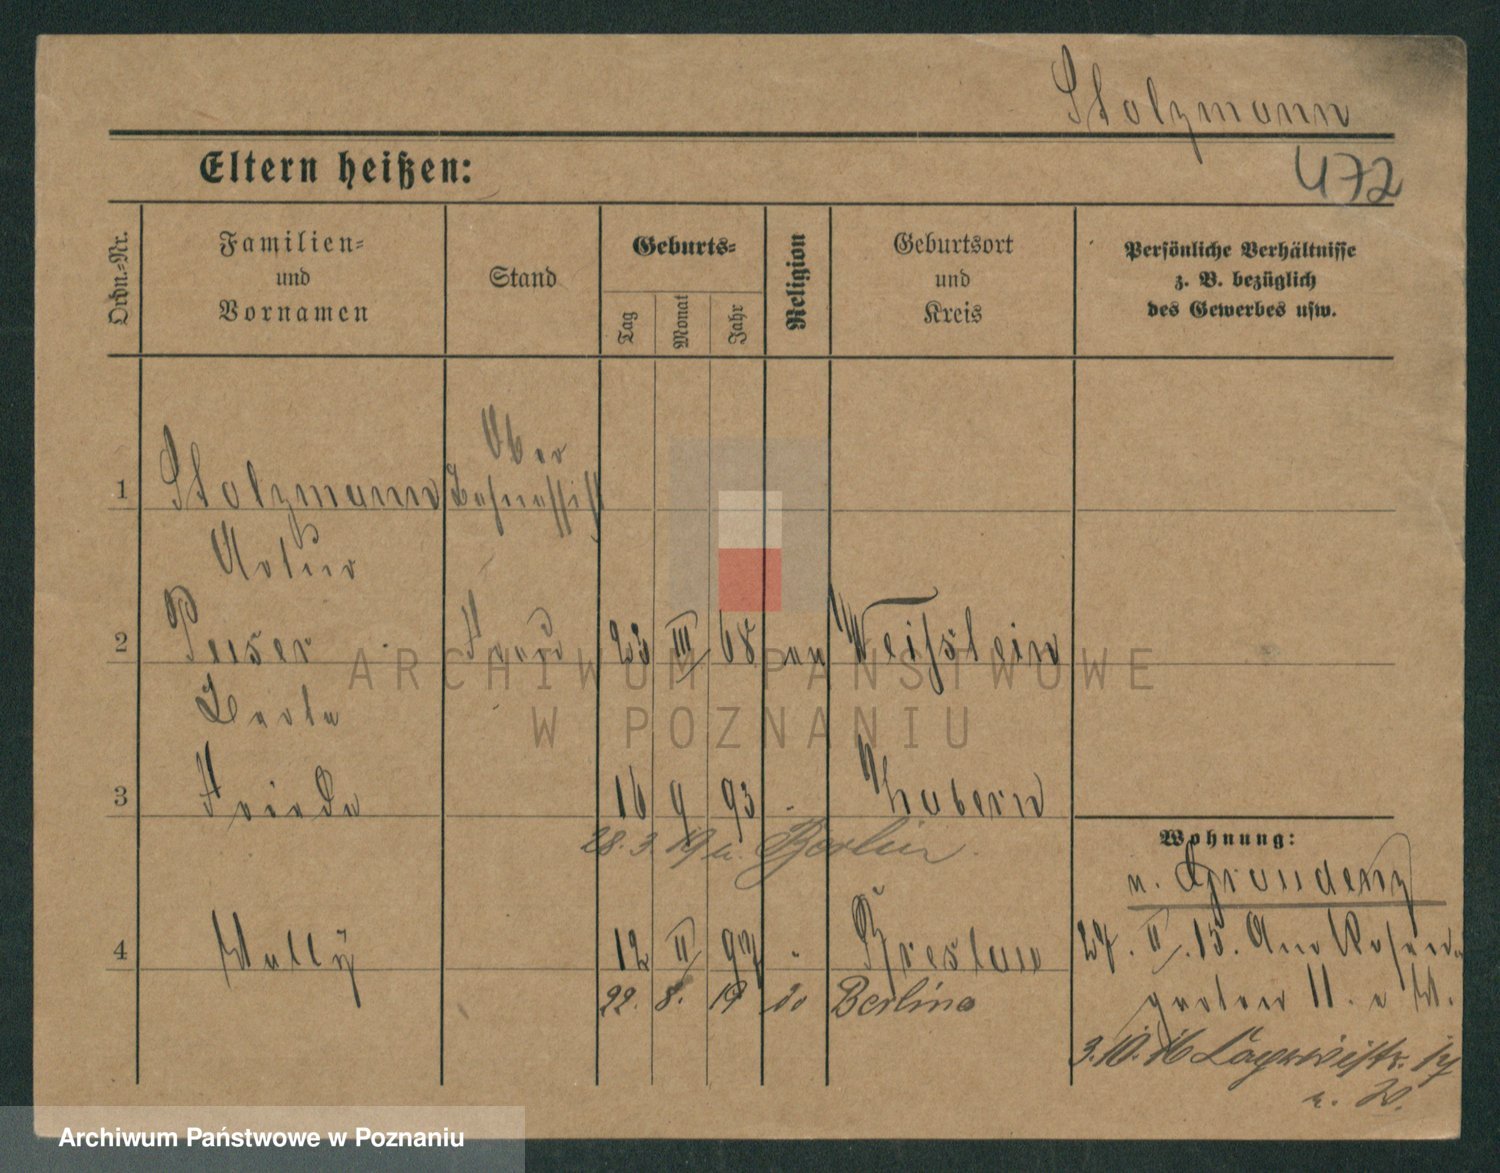 Stolzmann
Eltern heißen:
472
Ordn.-Nr.
Familien-
und
Vornamen
Stand
Geburts-
Tag
Monat
Jahr
Religion
Geburtsort
und
Kreis
Persönliche Verhältnisse
z. B. bezüglich
des Gewerbes usw.
1 Stolzmann
Ober
Artur
2 Peiser Frau 23 III 68 Weißstein
Berta
3 Frieda 16 9 93 Zabern
28. 3. 19 n. Berlin.
Wohnung:
n. Graudenz
4 Wally 12 II 97 Breslau
27. II. 15. Am Rosen-
garten 11.
22. 8. 19 do Berlin
3. 10. 16
ARCHIWUM PAŃSTWOWE
W POZNANIU
Archiwum Państwowe w Poznaniu